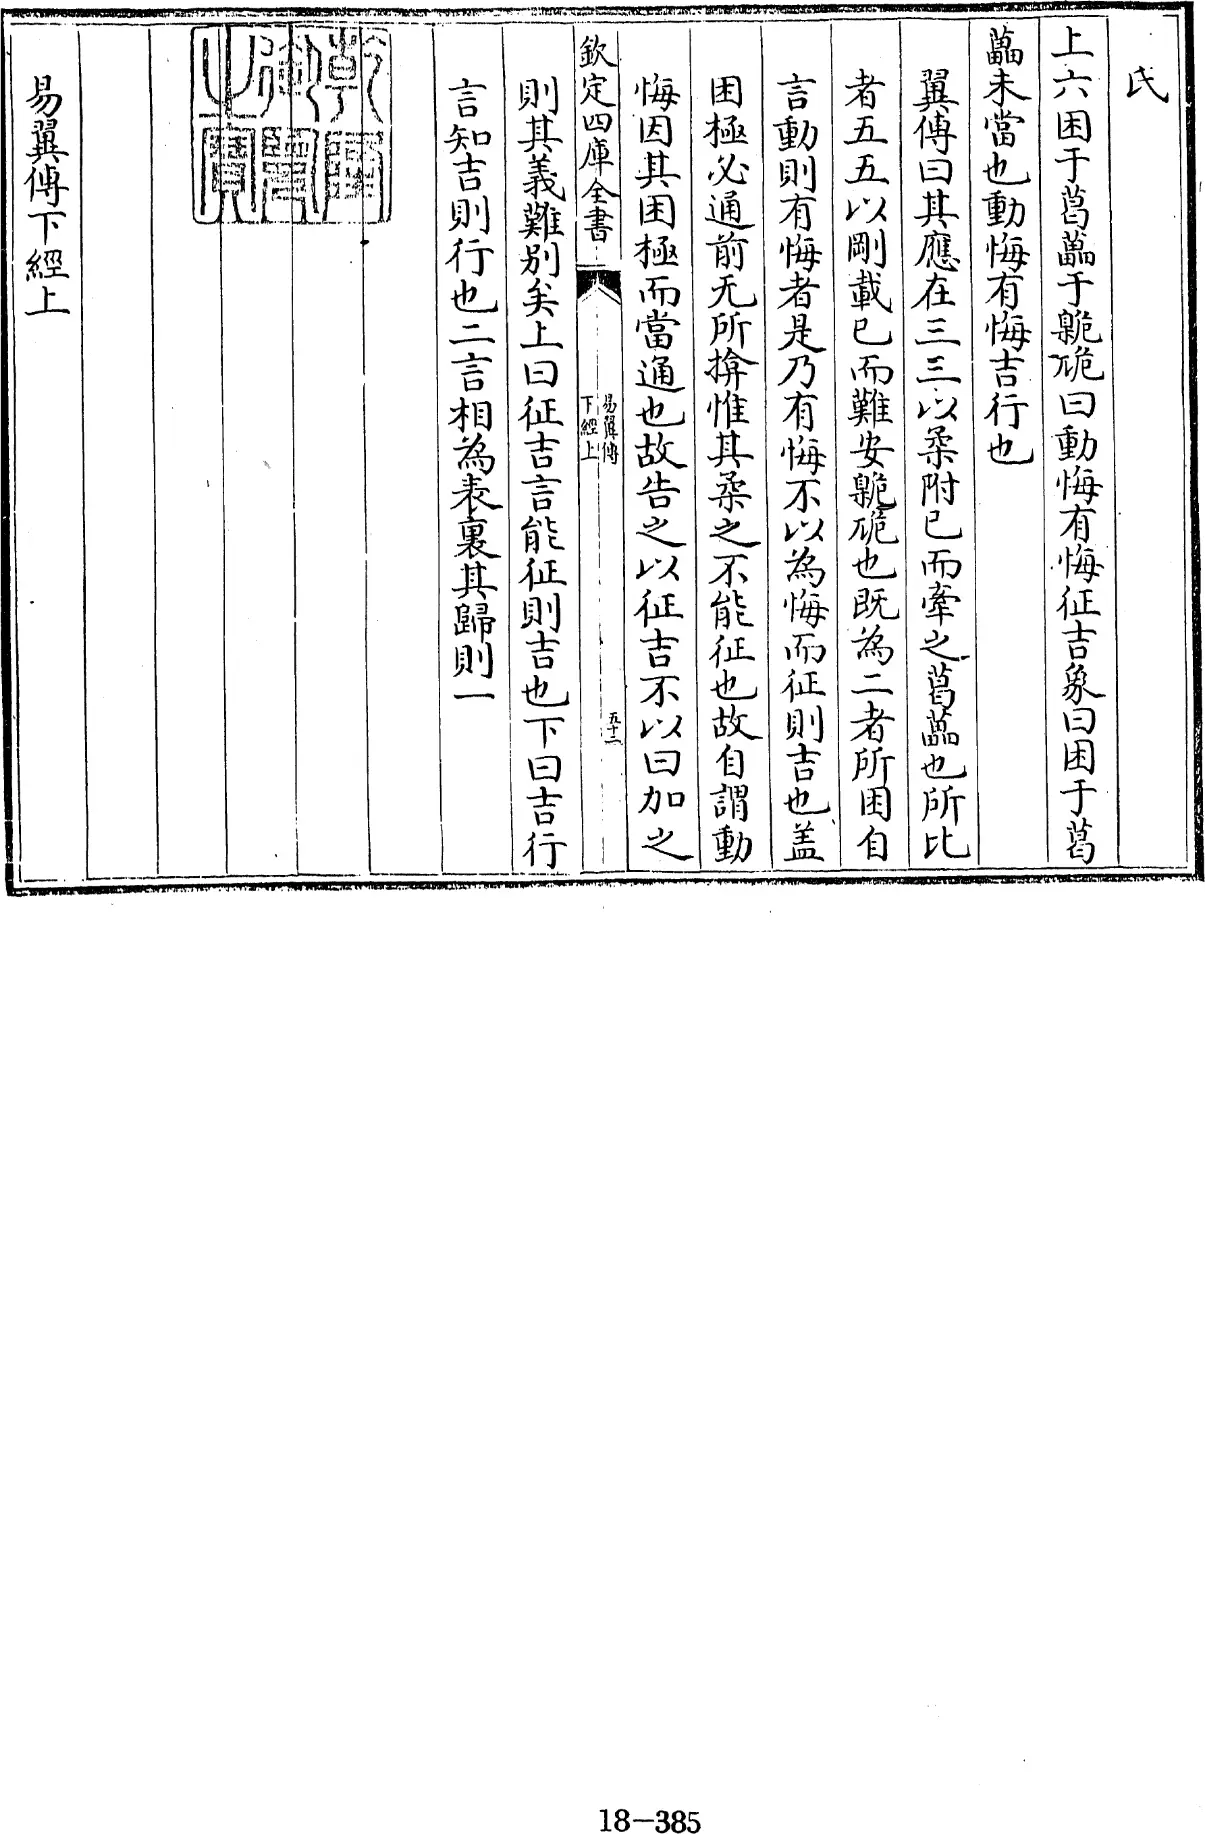 氏
上六困于葛藟于臲卼曰動悔有悔征吉象曰困于葛
藟未當也動悔有悔吉行也
翼傳曰其應在三三以柔附已而牽之葛藟也所比
者五五以剛載已而難安臲卼也既為二者所困自
言動則有悔者是乃有悔不以為悔而征則吉也盖
困極必通前无所揜惟其柔之不能征也故自謂動
悔因其困極而當通也故告之以征吉不以曰加之
欽定四庫全書
易翼傳
下經上
五十二
則其義難别矣上曰征吉言能征則吉也下曰吉行
言知吉則行也二言相為表裏其歸則一
乾隆御覽之寶
易翼傳下經上
18-385